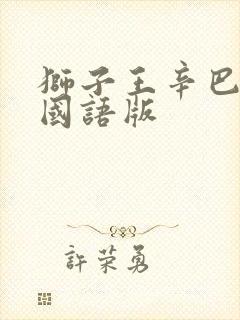 獅子王辛巴
國語版
許荣勇